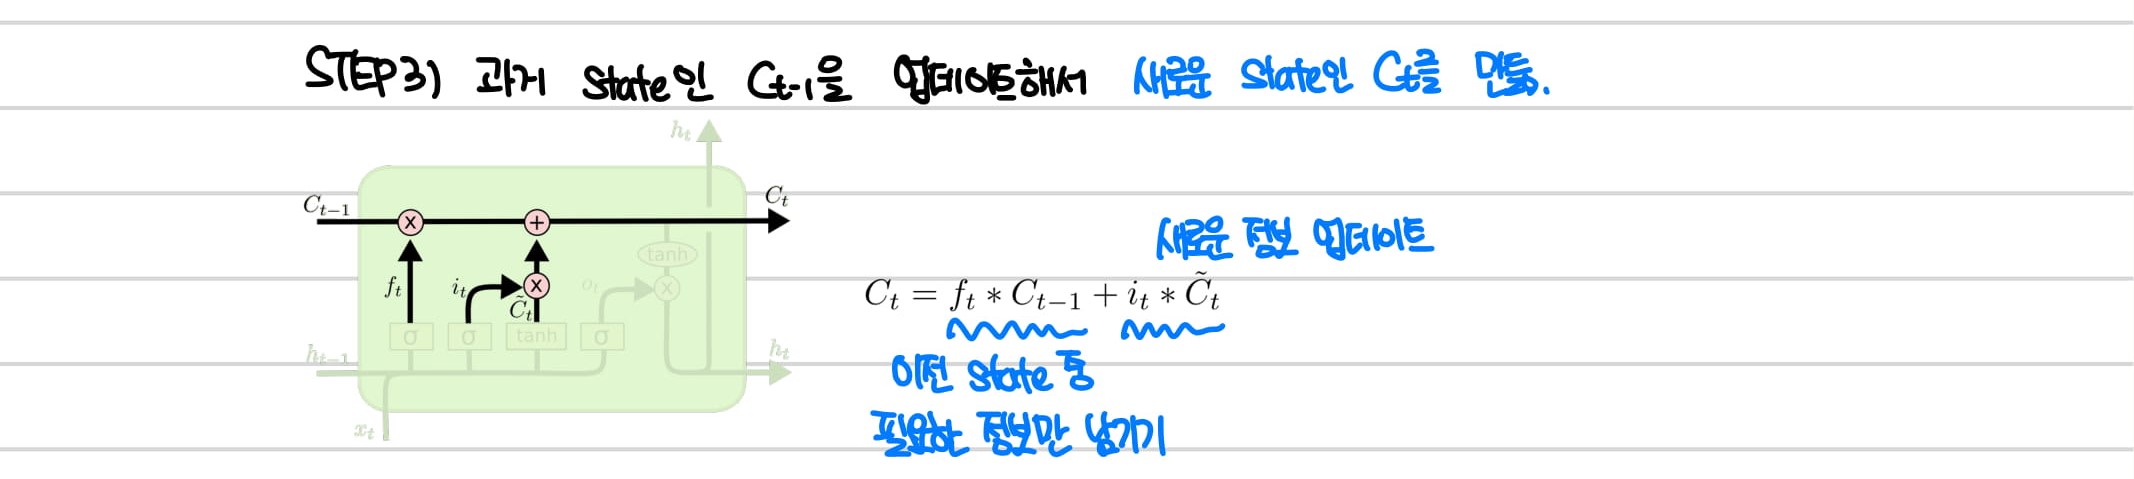 STEP3) 과거 state인 Ct-1을 업데이트해서 새로운 state인 Ct를 만듦.
h_t
C_{t-1}
C_t
tanh
f_t
i_t
o_t
C̃_t
σ σ tanh σ
h_{t-1}
h_t
x_t
새로운 정보 업데이트
C_t = f_t * C_{t-1} + i_t * C̃_t
이전 state 중
필요한 정보만 남기기